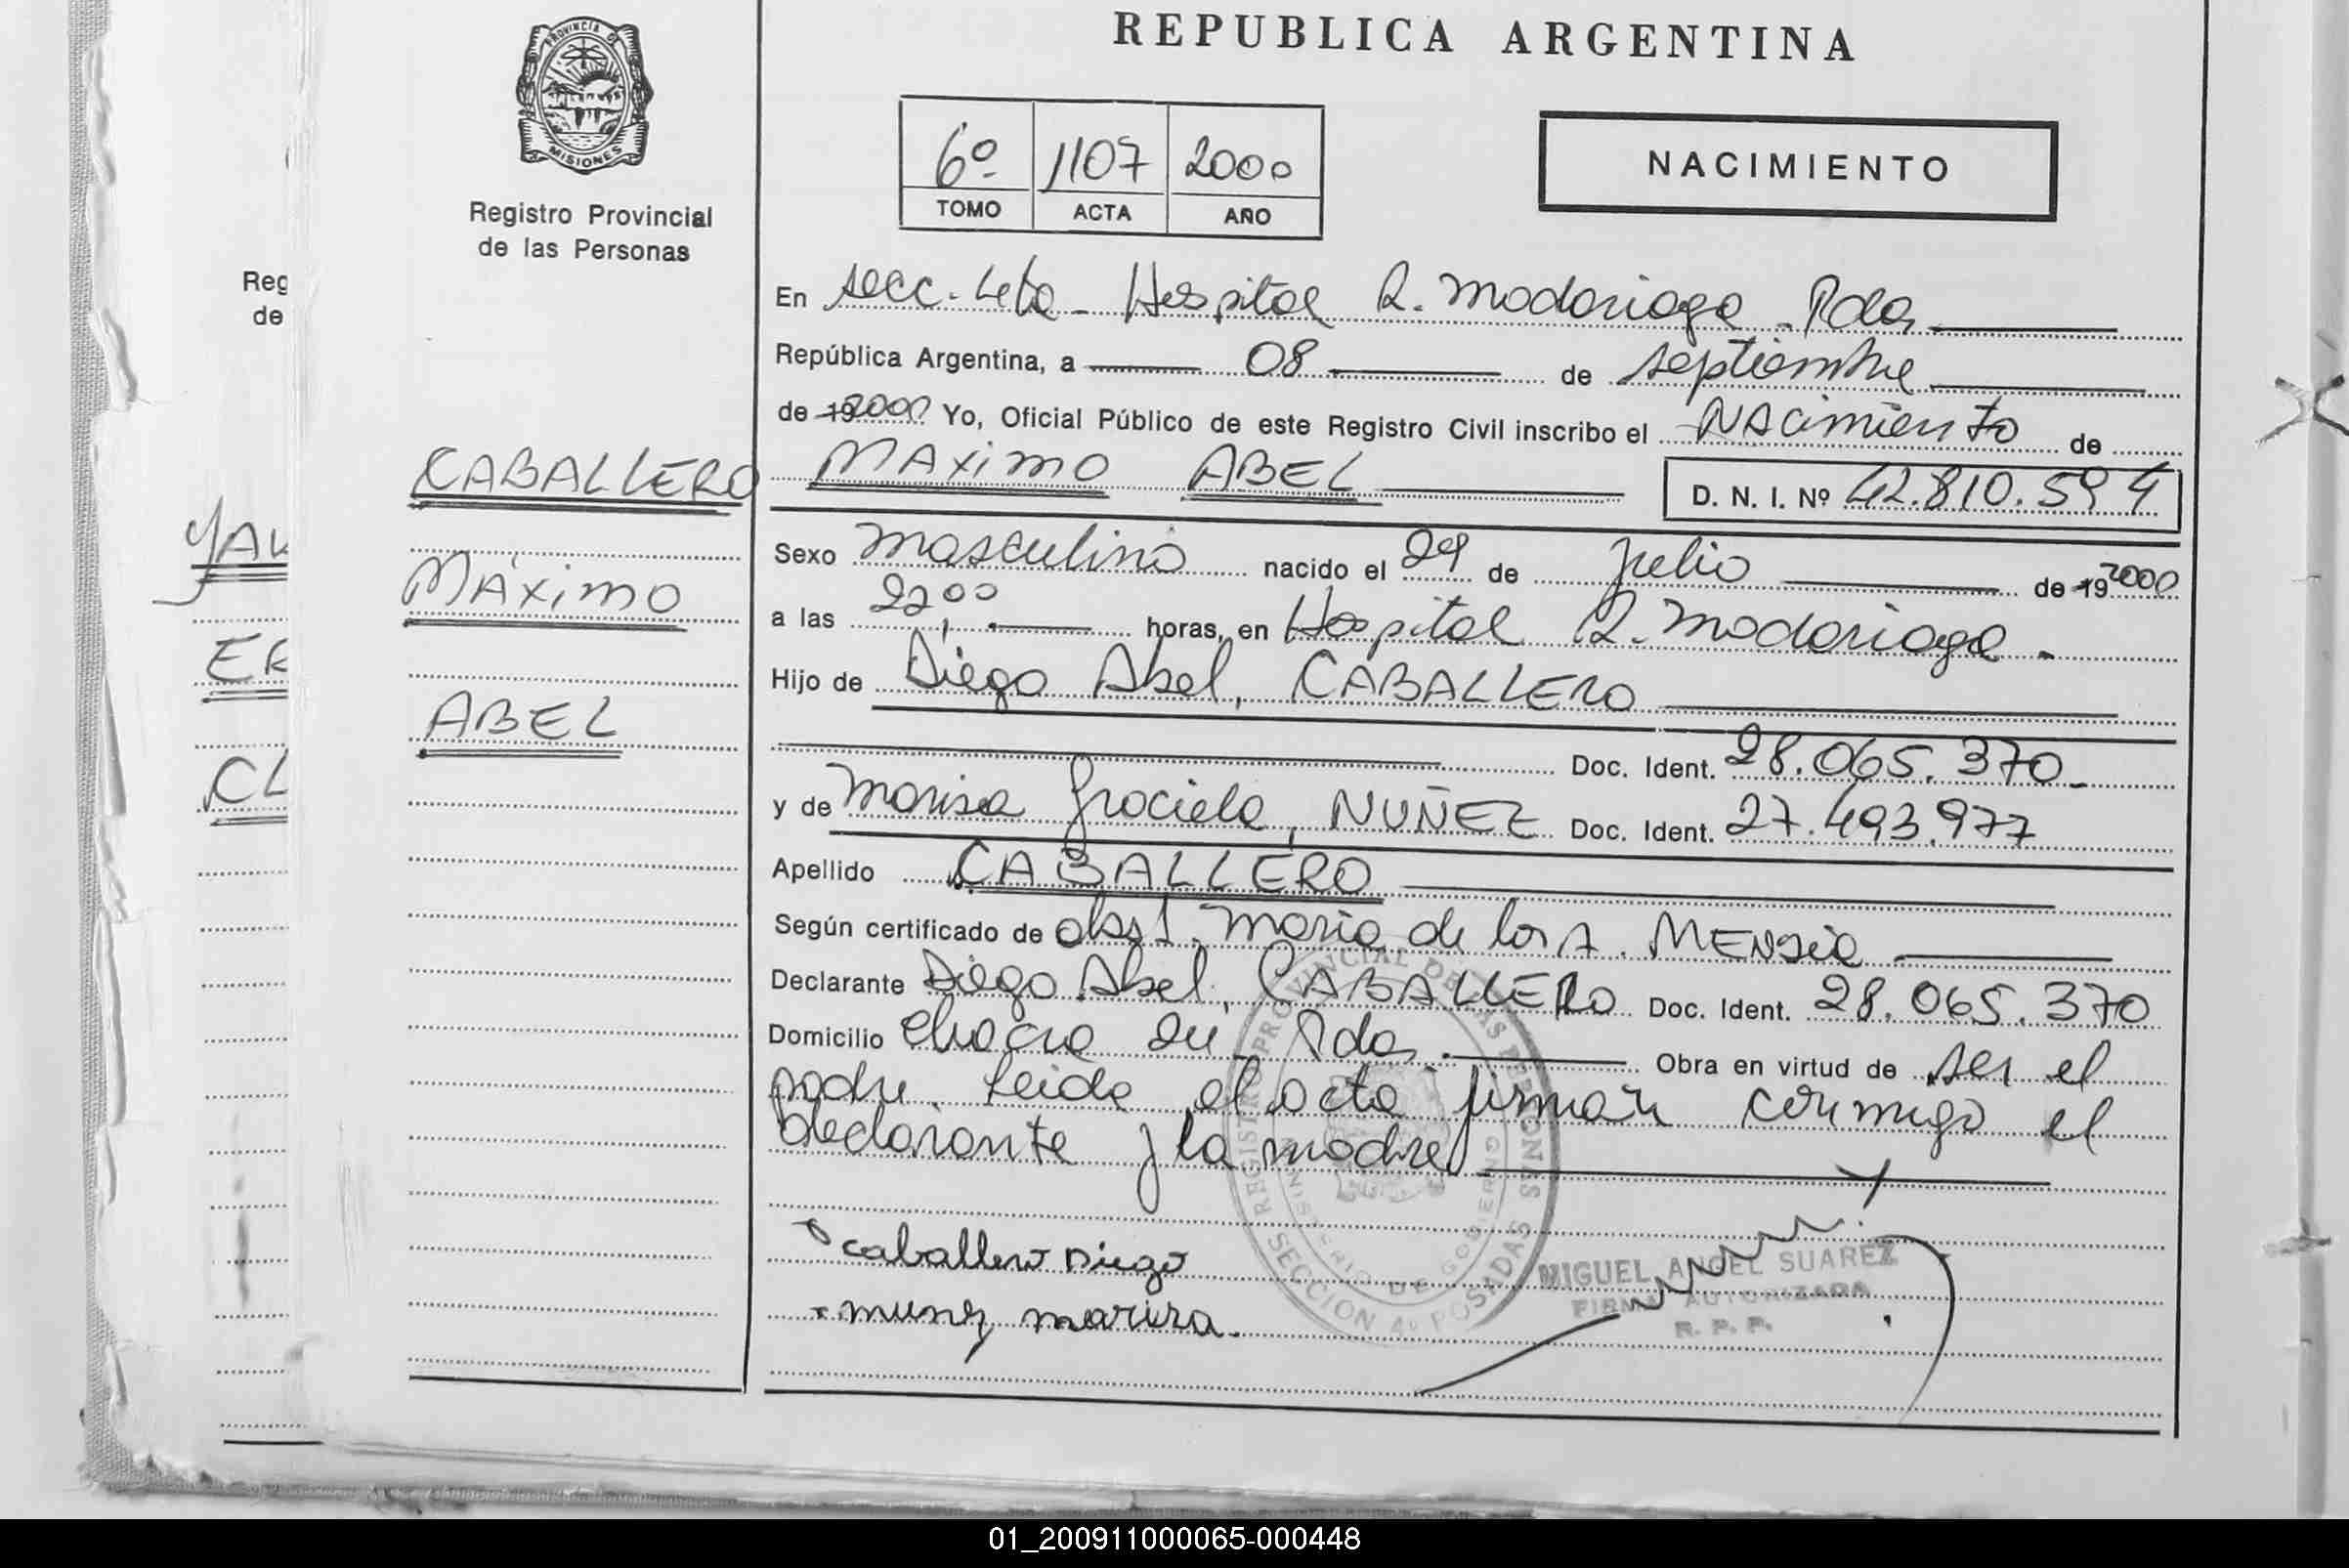 REPUBLICA ARGENTINA
PROVINCIA DE
MISIONES
Registro Provincial
de las Personas
6º 1107 2000
TOMO ACTA AÑO
NACIMIENTO
Reg
de
En secc. 4ta - Hospital R. Madariaga - Pdas
República Argentina, a 08 de septiembre
de 19 2000 Yo, Oficial Público de este Registro Civil inscribo el Nacimiento de
CABALLERO MAXIMO ABEL D. N. I. Nº 42.810.594
YAV
Sexo masculino nacido el 29 de Julio de 19 2000
MÁXIMO
a las 22,00 horas, en Hospital R. Madariaga.
ER
Hijo de Diego Abel, CABALLERO
ABEL
Doc. Ident. 28.065.370
CL
y de Marisa Graciela, NUÑEZ Doc. Ident. 27.493.977
Apellido CABALLERO
Según certificado de obst. Maria de los A. MENSIA
Declarante Diego Abel, CABALLERO Doc. Ident. 28.065.370
Domicilio chacra Pdas. Obra en virtud de ser el
padre. Leida el acta firman conmigo el
declarante y la madre
REGISTRO PROVINCIAL DE LAS PERSONAS
MINISTERIO DE GOBIERNO
SECCION 4º POSADAS
caballero Diego
MIGUEL ANGEL SUAREZ
FIRMA AUTORIZADA
R. P. P.
marisa.
01_200911000065-000448